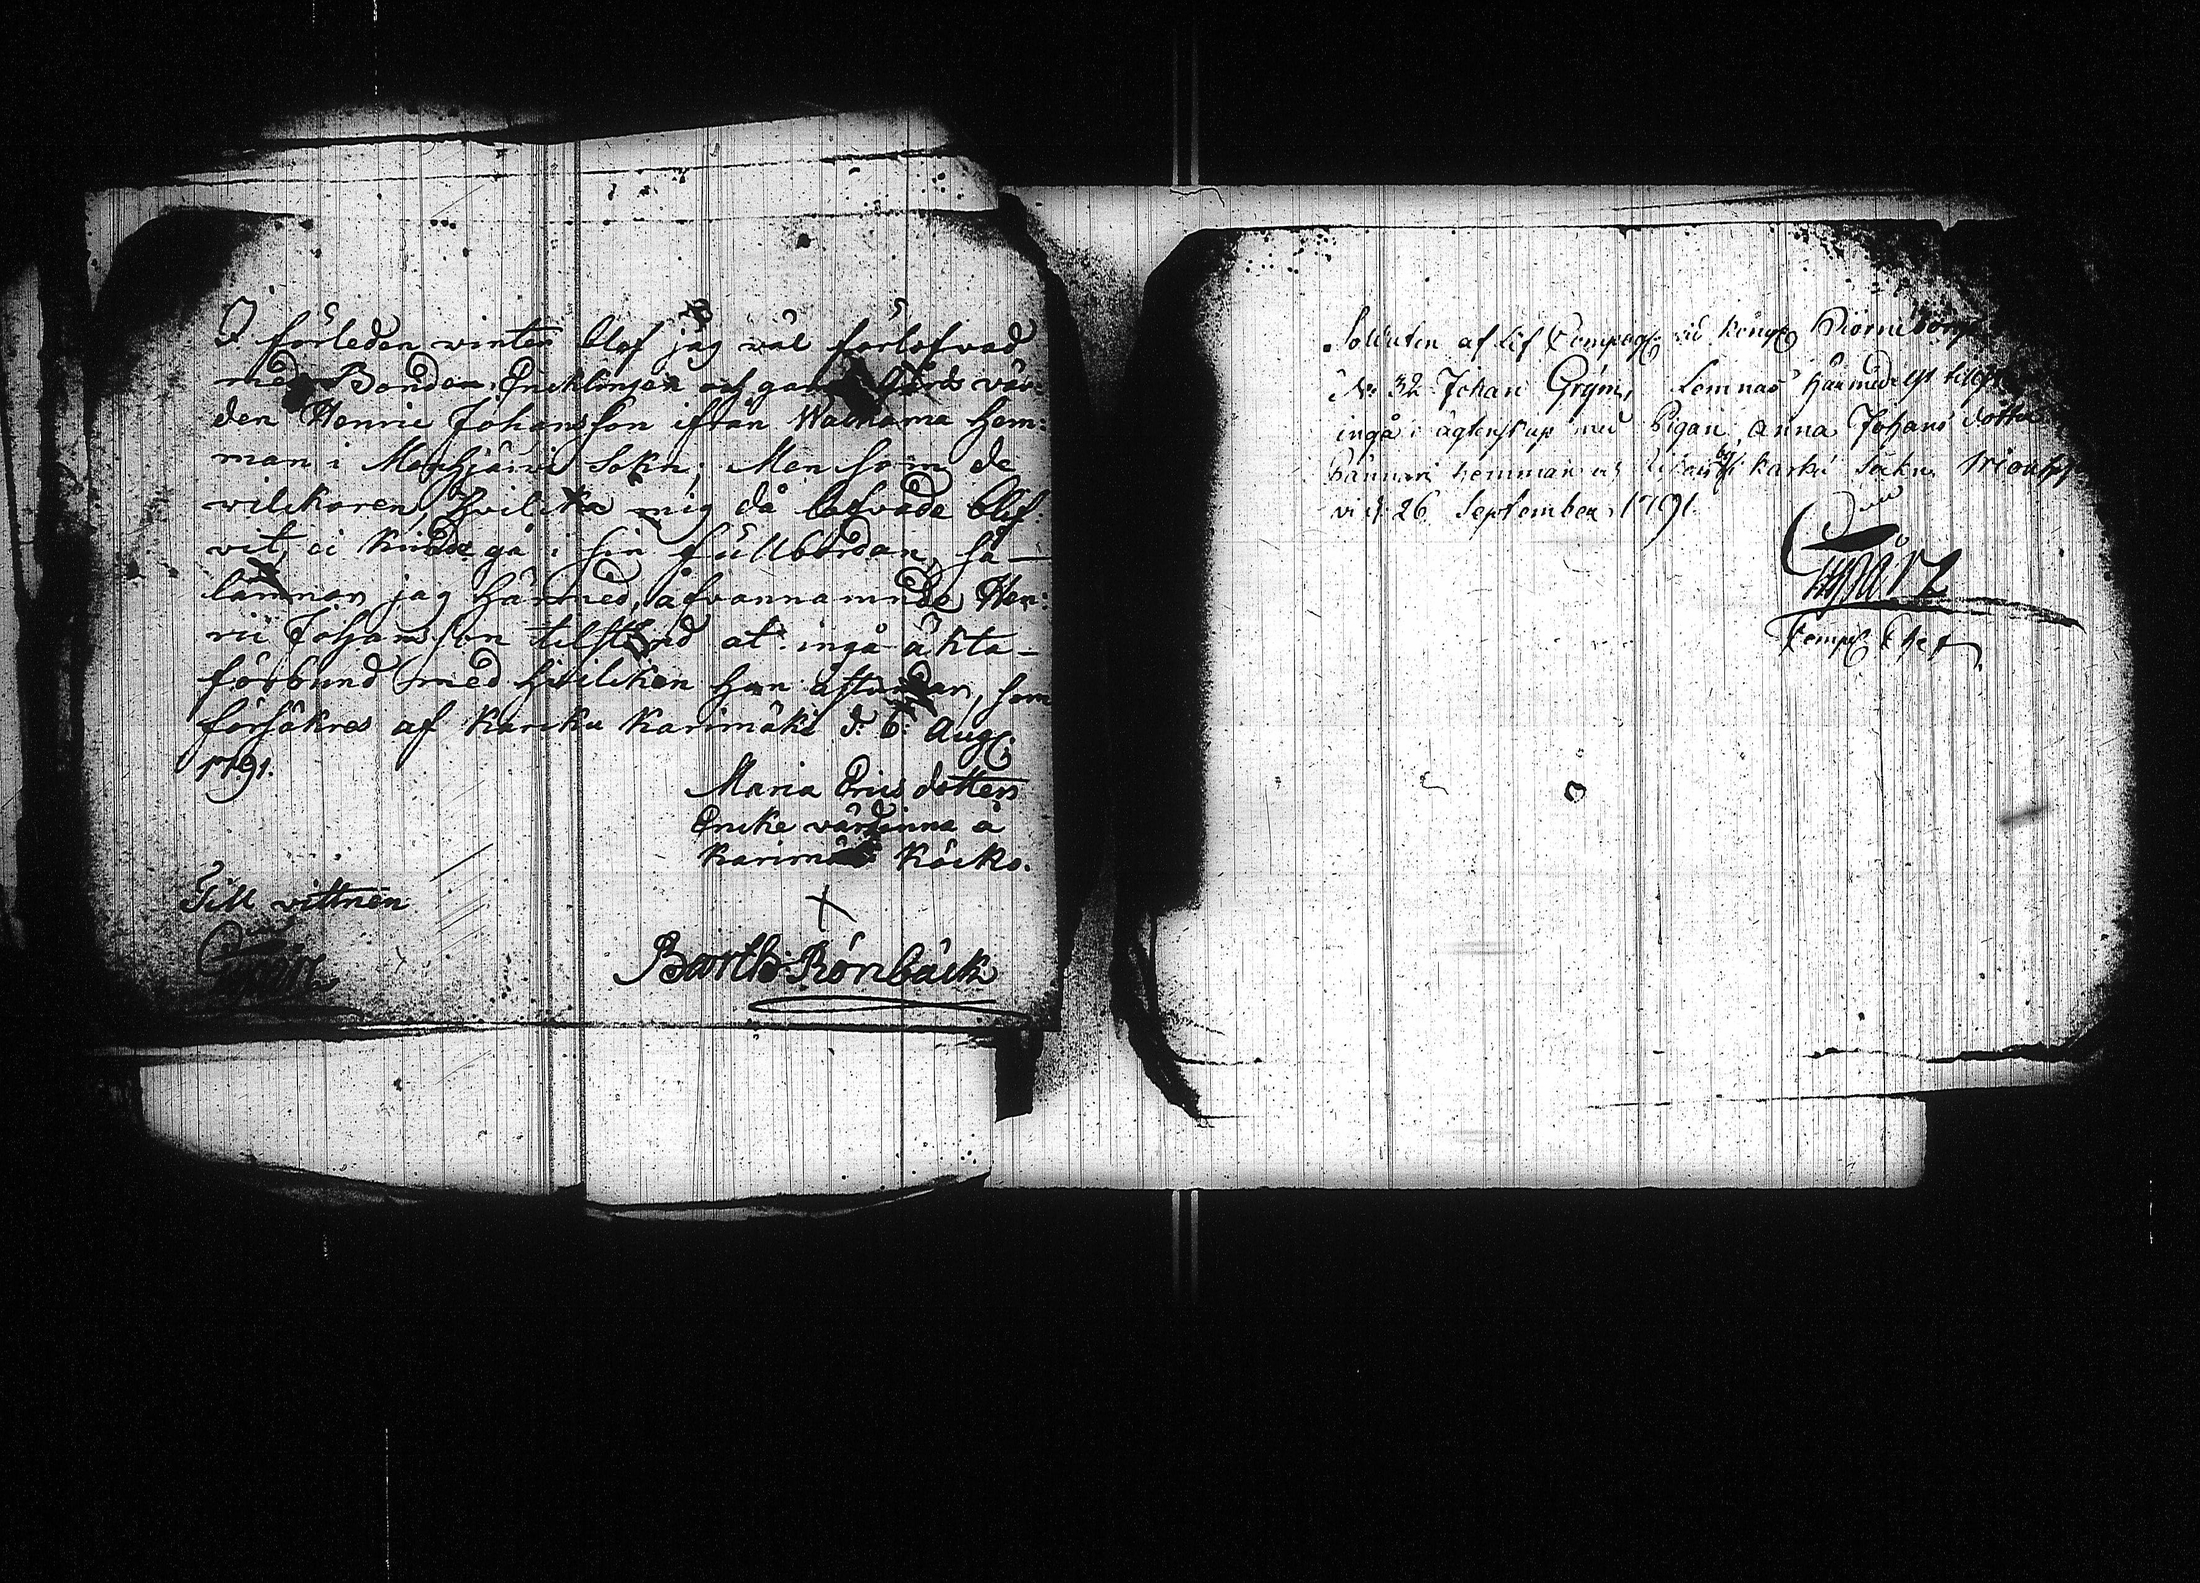 I förleden winter blef jag väl förlofvad
med Bonden, Encklingen och gam Gårds vär-
den Henric Johansson ifrån Wachama hem:
man i Mouhijärvi Sokn; Men som de
vilckoren, hvilcka mig då lofvade blef-
vit, ei kunde gå i sin fullbordan, så
lämnar jag härmed, åfvannamnde Hen:
ric Johansson tilstånd at ingå äkta-
förbund med hvilcken han åstundar, som
försäkras af Karcku Karimäki d: 6: Aug:
1791.
Maria Erics dotter
Encke värdinna å
Karimäki Kôcko.
Till vittnen
Barth: Rönbäck
Soldaten af Lif Compag: vid Kongl Biörneborgs
No 32 Johan Grym, Lemnas härmedelst tilstå
ingå ägtenskap med Pigan Anna Johans dotter
hemman och Karku Sockn
vid 26 September 1791.
Comp: Chef